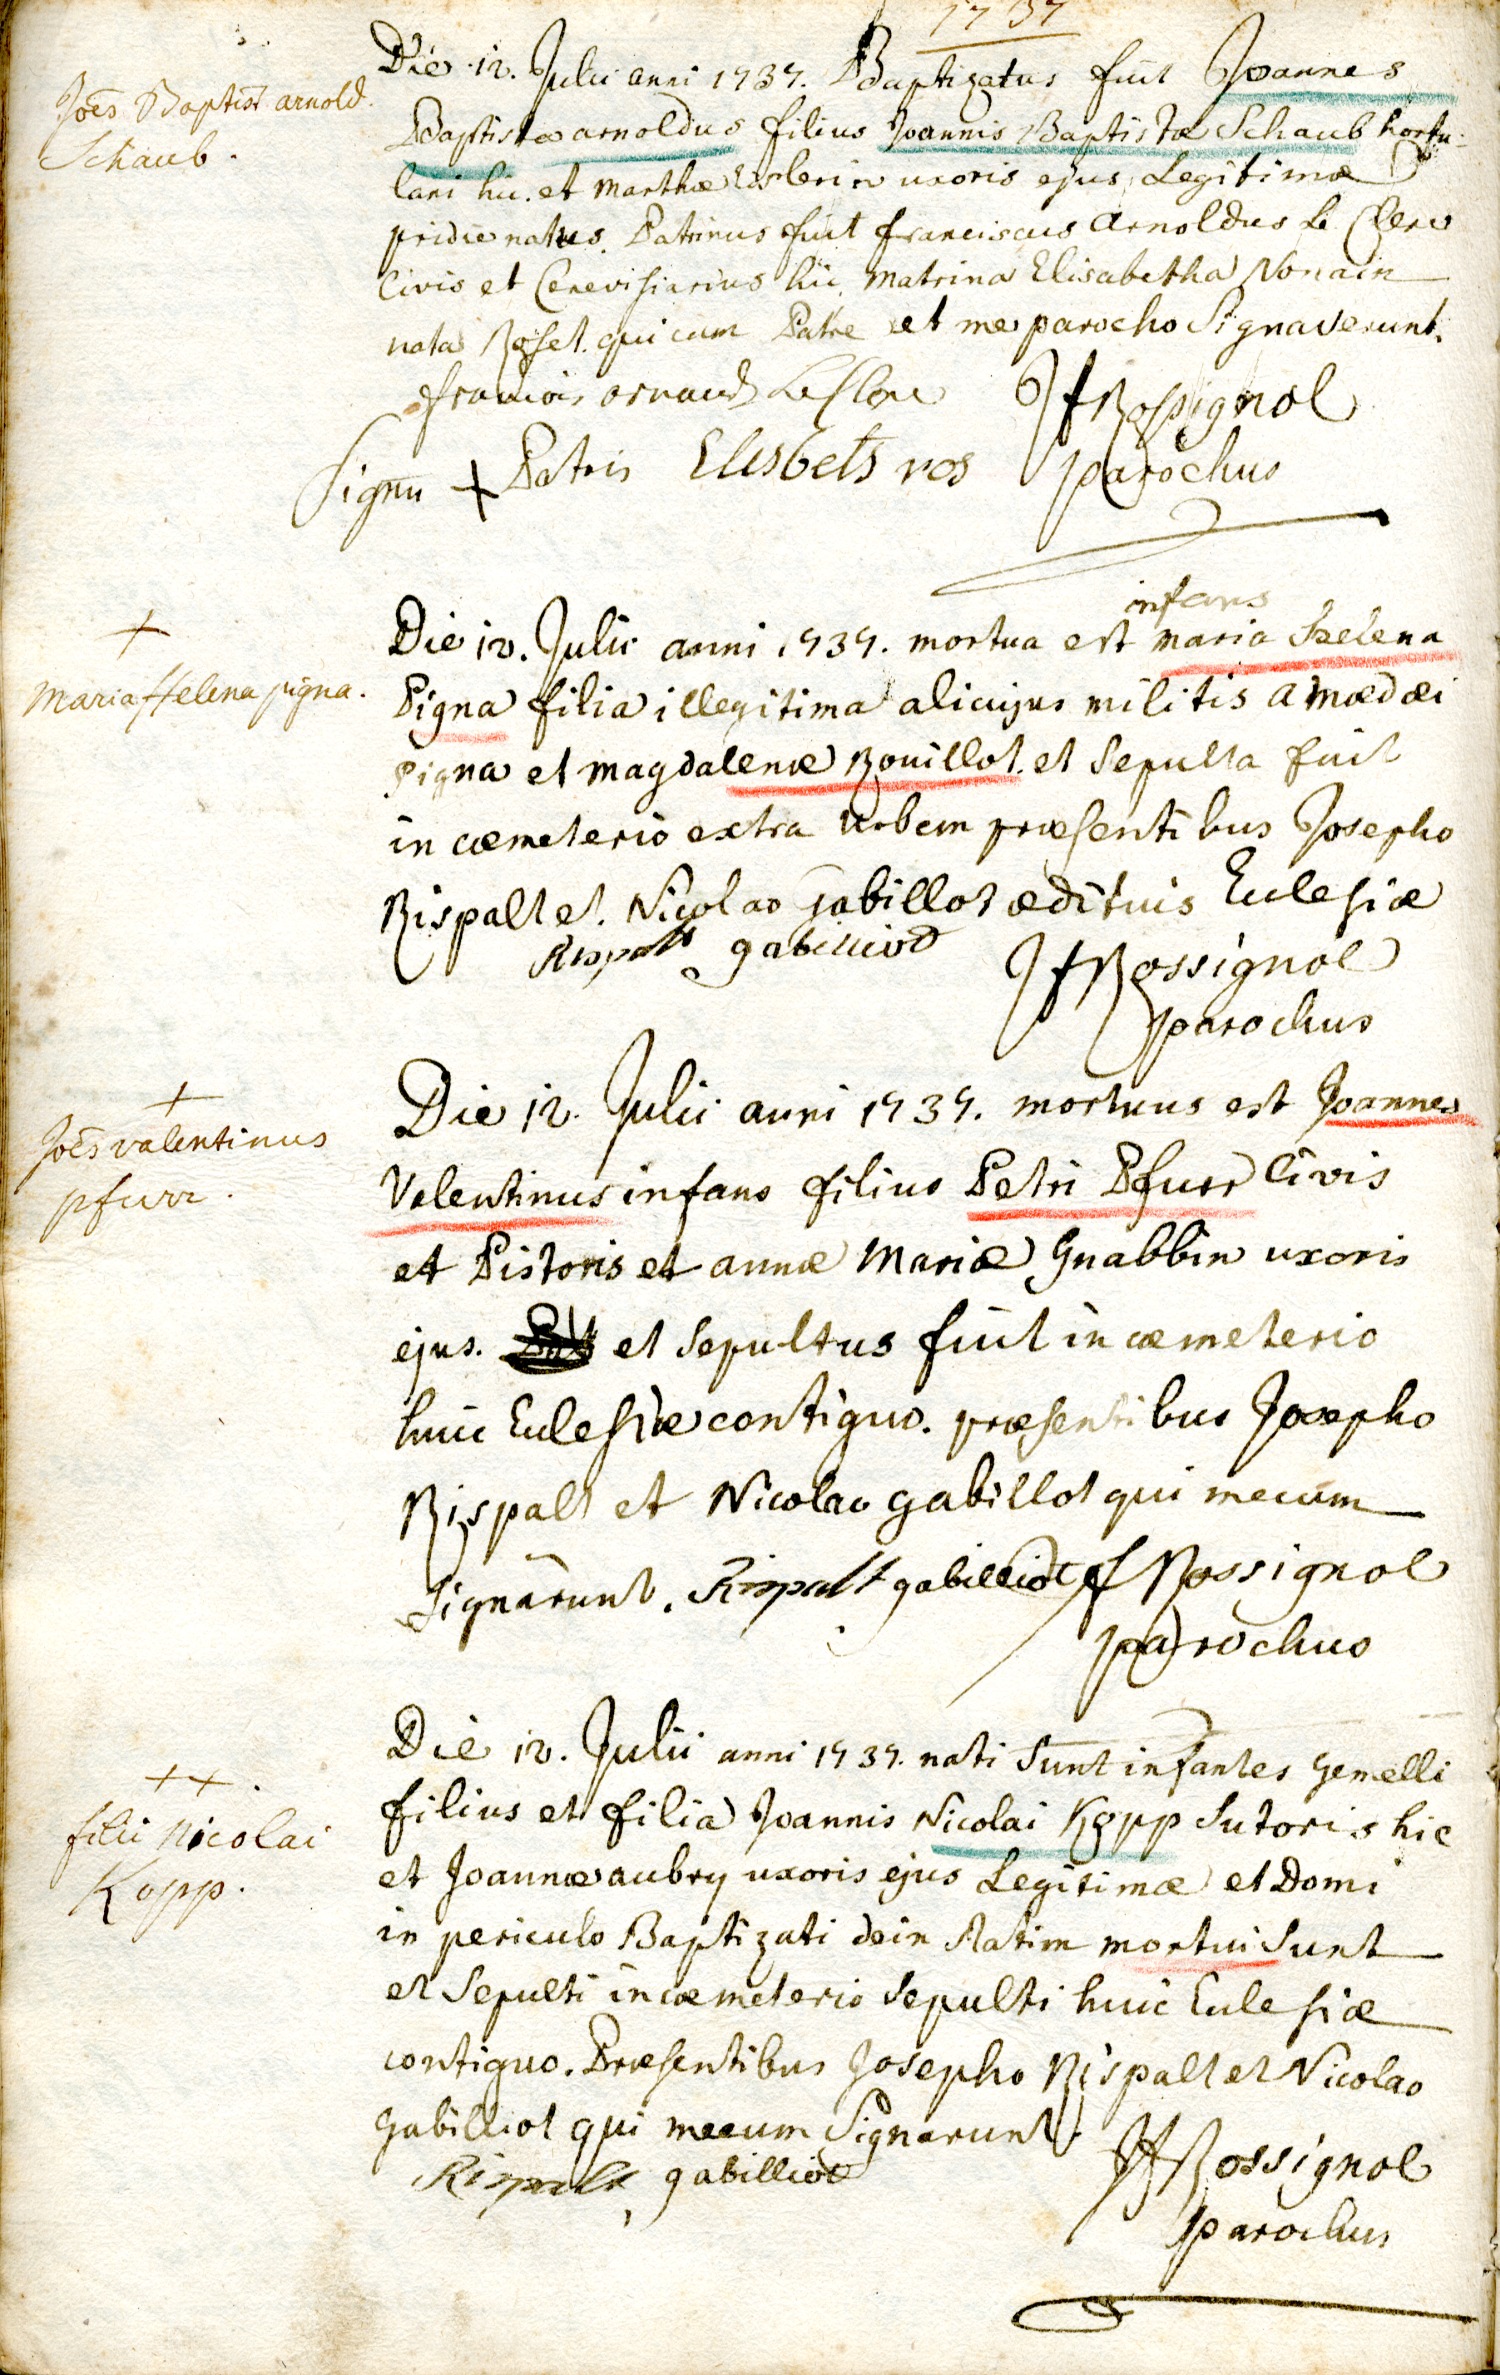 1737
Joēs Baptist arnold.
Schaub.
Die 12. Julii anni 1737. Baptizatus fuit Joannes
Baptista arnoldus filius Joannis Baptistæ Schaub hortu-
lani hic. et Marthæ uxoris ejus Legitimæ
pridie natus. Patrinus fuit franciscus Arnoldus Le Clerc
Civis et Cerevisiarius hic, Matrina Elisabetha Nonain
nata Roset. qui cum Patre et me parocho Signaverunt.
francois arnaud LeClerc JfRossignol
Signū + Patris Elisbets ros parochus
+
Maria Helena pigna.
infans
Die 12. Julii anni 1737. mortua est maria Helena
Pigna filia illegitima alicujus militis Amædæi
Pigna et Magdalenæ Bouillot. et Sepulta fuit
in cæmeterio extra Urbem præsentibus Josepho
Rispalt et. Nicolao Gabillot ædituis Eclesiæ
Rispalt gabilliot JfRossignol
parochus
+
Joēs valentinus
pfurr.
Die 12. Julii anni 1737. mortuus est Joannes
Valentinus infans filius Petri Pfurr Civis
et Pistoris et annæ Mariæ Gnabbin uxoris
ejus. et Sepultus fuit in cæmeterio
huic Eclesiæ contiguo. præsentibus Josepho
Rispalt et Nicolao gabillot qui mecum
Signarunt. Rispalt gabilliot Jf Rossignol
parochus
+ +
filii Nicolai
Kopp.
Die 12. Julii anni 1737. nati Sunt infantes Gemelli
filius et filia Joannis Nicolai Kopp Sutoris hic
et Joannæ aubry uxoris ejus Legitimæ et Domi
in periculo Baptizati dein Statim mortui Sunt
et Sepulti in cæmeterio Sepulti huic Eclesiæ
contiguo. Præsentibus Josepho Rispalt et Nicolao
Gabilliot qui mecum Signarunt.
Rispalt gabilliot JfRossignol
parochus